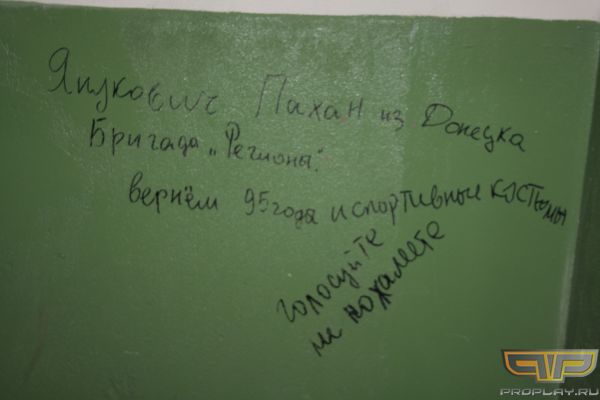 Янукович Пахан из Донецка
Бригада „Регионы".
вернём 95 года и спортивные костюмы
голосуйте
не пожалеете
PROPLAY.RU